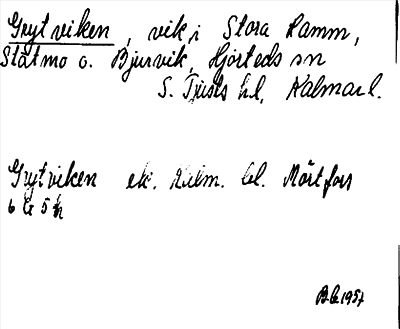 Grytviken, vik i Stora Ramm,
Slätmo o. Bjurvik, Hjorteds sn
S. Tjusts hd, Kalmar l.
Grytviken ek. Kalm. bl. Mörtfors
6 G 5 h
B.G. 1957